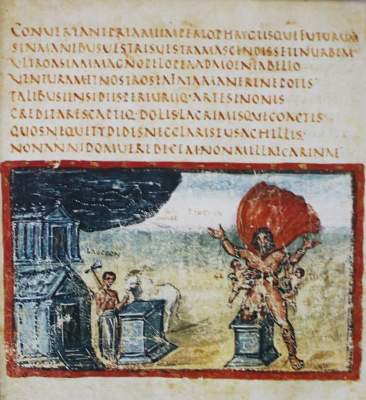 CONVERTANTPRIAMIIMPERIOPHRYGIBUSQUEFUTURUM
SINMANIBUSVESTRISVESTRAMASCENDISSETINURBEM
ULTROASIAMMAGNOPELOPEAADMOENIABELLO
VENTURAMETNOSTROSEAFATAMANERENEPOTES
TALIBUSINSIDIISPERIURIQ·ARTESINONIS
CREDITARESCAPTIQ·DOLISLACRIMISQUECOACTIS
QUOSNEQUETYDIDESNECLARISEUSACHILLES
NONANNIDOMUEREDECEMNONMILLECARINAE
LAOCOON